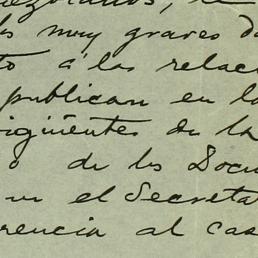 s muy graves da
to á las relaci
publican en la
igüentes de la
o de los Docu
en el Secreta
rencia al cas